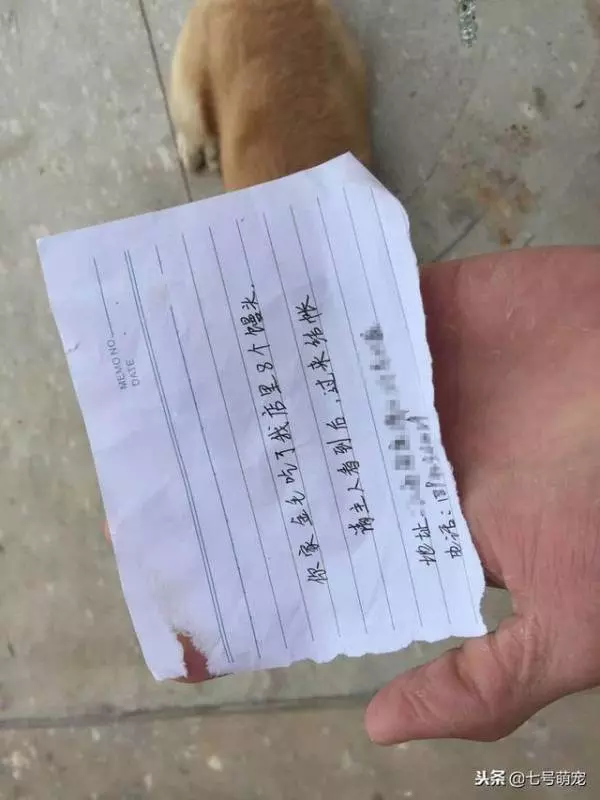 MEMO NO.
DATE
你家金毛吃了我店里8个馒头.
请主人看到后,过来结帐
地址
电话:
头条 @七号萌宠